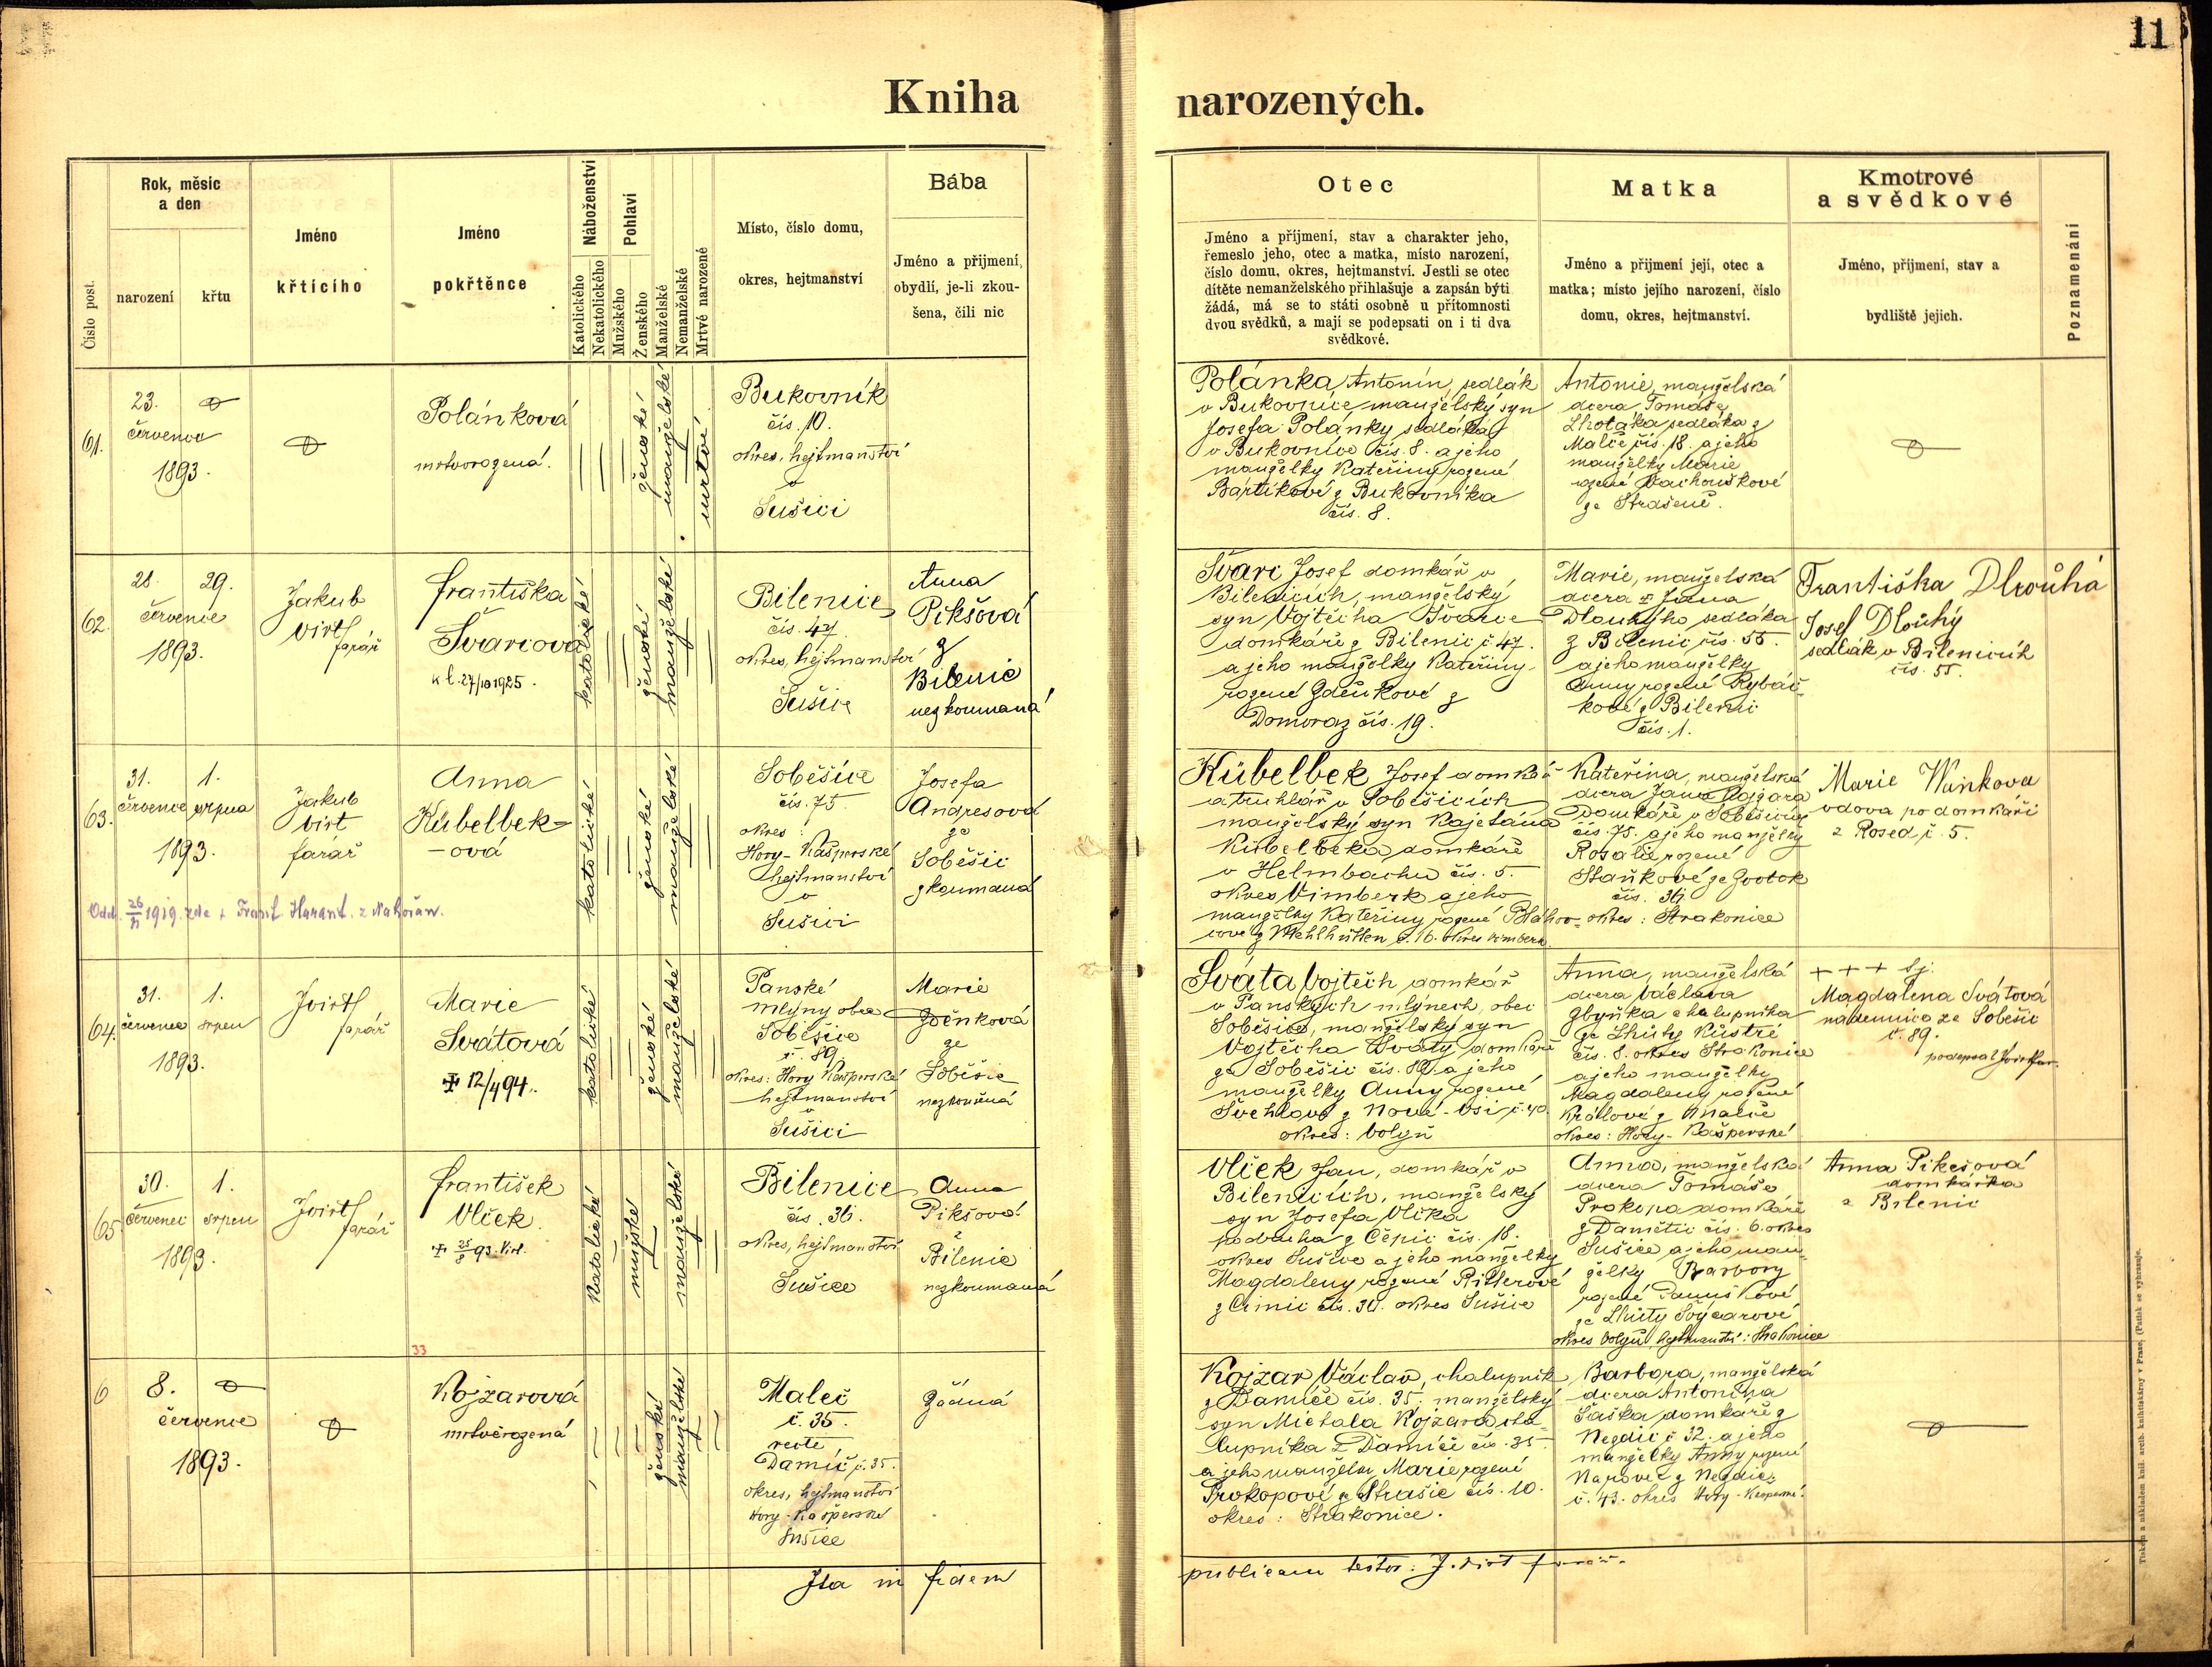 11
Kniha narozených.
Číslo post.
Rok, měsíc
a den
narození
křtu
Jméno
křtícího
Jméno
pokřtěnce
Náboženství
Katolického
Nekatolického
Pohlaví
Mužského
Ženského
Manželské
Nemanželské
Mrtvé narozené
Místo, číslo domu,
okres, hejtmanství
Bába
Jméno a přijmení,
obydlí, je-li zkou-
šena, čili nic
Otec
Jméno a příjmení, stav a charakter jeho,
řemeslo jeho, otec a matka, místo narození,
číslo domu, okres, hejtmanství. Jestli se otec
dítěte nemanželského přihlašuje a zapsán býti
žádá, má se to státi osobně u přítomnosti
dvou svědků, a mají se podepsati on i ti dva
svědkové.
Matka
Jméno a příjmení její, otec a
matka; místo jejího narození, číslo
domu, okres, hejtmanství.
Kmotrové
a svědkové
Jméno, příjmení, stav a
bydliště jejich.
Poznamenání
61.
23.
července
1893.
Polánková
mrtvorozená.
ženské
manželské
mrtvé
Bukovník
čís. 10.
okres, hejtmanství
v
Sušici
Polánka Antonín, sedlák
v Bukovníce manželský syn
Josefa Polánky sedláka
v Bukovníce čís. 8. a jeho
manželky Kateřiny rozené
Bártíkové z Bukovníka
čís. 8.
Antonie, manželská
dcera Tomáše
Lhotáka sedláka z
Malče čís. 18. a jeho
manželky Marie
rozené Vachouškové
ze Strašeně.
62.
28. 29.
července
1893.
Jakub
Virt
farář
Františka
Švarcová
katolické
ženské
manželské
Bilenice
čís. 47.
okres, hejtmanství
Sušice
Anna
Pikšová
z
Bilenic
nezkoumaná
Švarc Josef domkář v
Bilenicích, manželský
syn Vojtěcha Švarce
domkáře z Bilenic č. 47.
a jeho manželky Kateřiny
rozené Zdeňkové z
Domoraz čís. 19.
Marie, manželská
dcera Jana
Dlouhýho sedláka
z Bilenic čís. 55.
a jeho manželky
Anny rozené Rybáč-
kové z Bilenic
čís. 1.
Františka Dlouhá
Josef Dlouhý
sedlák v Bilenicích
čís. 55.
63.
31. 1.
července srpna
1893.
Jakub
Virt
farář
Anna
Kübelbek-
-ová
katolické
ženské
manželské
Soběšice
čís. 75
okres:
Hory-Kašperské
hejtmanství
v
Sušici
Josefa
Andresová
ze
Soběšic
zkoumaná
Odd. 26/XI 1919. zde s Frant. Harant. z Nahořan.
Kübelbek Josef domkář
a truhlář v Soběšicích
manželský syn Kajetána
Kübelbeka, domkáře
v Helmbachu čís. 5.
okres Vimberk a jeho
manželky Kateřiny rozené Bláhov-
cové z Mehlhütten č. 16. okres Vimberk.
Kateřina, manželská
dcera Jana Kojzara
domkáře v Soběšicích
čís. 75. a jeho manželky
Rosalie rozené
Staňkové ze Zvotok
čís. 36.
okres: Strakonice
Marie Vaňkova
vdova po domkáři
z Rosed č. 5.
64.
31. 1.
července srpen
1893.
J. Virt
farář
Marie
Svátová
12/4 94.
katolické
ženské
manželské
Panské
mlýny obec
Soběšice
č. 89
okres: Hory Kašperské
hejtmanství
v
Sušici
Marie
Zdeňková
ze
Soběšic
nezkoušená
Sváta Vojtěch domkář
v Panských mlýnech, obec
Soběšice, manželský syn
Vojtěcha Sváty domkáře
ze Soběšic čís. 89. a jeho
manželky Anny rozené
Švehlové z Nové-Vsi č. 40.
okres: Volyň
Anna, manželská
dcera Václava
Zbyňka chalupníka
ze Lhoty
čís. 8. okres Strakonice
a jeho manželky
Magdaleny rozené
Králové z
okres: Hory-Kašperské
+++ sj.
Magdalena Svátová
nádennice ze Soběšic
č. 89.
podepsal J. Virt far.
65
30. 1.
červenec srpen
1893.
J. Virt
farář
František
Vlček.
25/8 93. Virt.
Katolické
mužské
manželské
Bilenice
čís. 36.
okres, hejtmanství
Sušice
Anna
Pikšová
z
Bilenic
nezkoumaná
Vlček Jan, domkář v
Bilenicích, manželský
syn Josefa Vlčka
podruha z Čepic čís. 18.
okres Sušice a jeho manželky
Magdaleny rozené Ritterové
z Čimic čís. 30. okres Sušice
Anna, manželská
dcera Tomáše
Prokopa domkáře
z Damětic čís. 6. okres
Sušice a jeho man-
želky Barbory
rozené
ze Lhoty
okres Volyň hejtmanství: Strakonice
Anna Pikešová
domkářka
z Bilenic
33
6
8.
července
1893.
Kojzarová
mrtvěrozená
ženské
manželské
Maleč
č. 35.
recte
Damíč č. 35.
okres, hejtmanství
Hory-Kašperské
Sušice
žádná
Kojzar Václav, chalupník
z Damíče čís. 35. manželský
syn Michala Kojzara cha-
lupníka z Damíče čís. 35.
a jeho manželky Marie rozené
Prokopové ze Strašic čís. 10.
okres: Strakonice.
Barbora, manželská
dcera Antonína
Šaška domkáře z
Nezdic č. 32. a jeho
manželky Anny rozené
z Nezdic
č. 43. okres Hory-Kašperské.
Ita in fidem publicam testor: J. Virt farář.